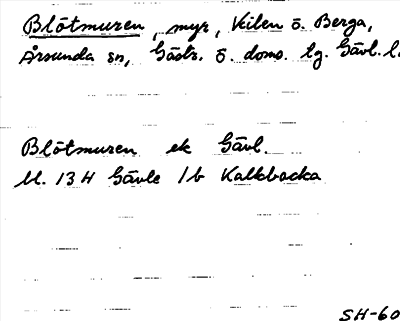 Blötmuren, myr, Kilen ö. Berga,
Årsunda sn, Gästr. ö. doms. lg. Gävl. l.
Blötmuren ek Gävl.
Ul. 13 H Gävle 1b Kalkbacka
SH-60